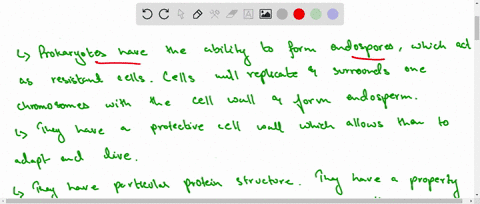 ↳ Prokaryotes have the ability to form endospores, which act
as resistant cells. Cells will replicate & surrounds one
chromosomes with the cell wall & form endosperm.
↳ They have a protective cell wall which allows than to
adapt and live.
↳ They have particular protein structure. They have a property